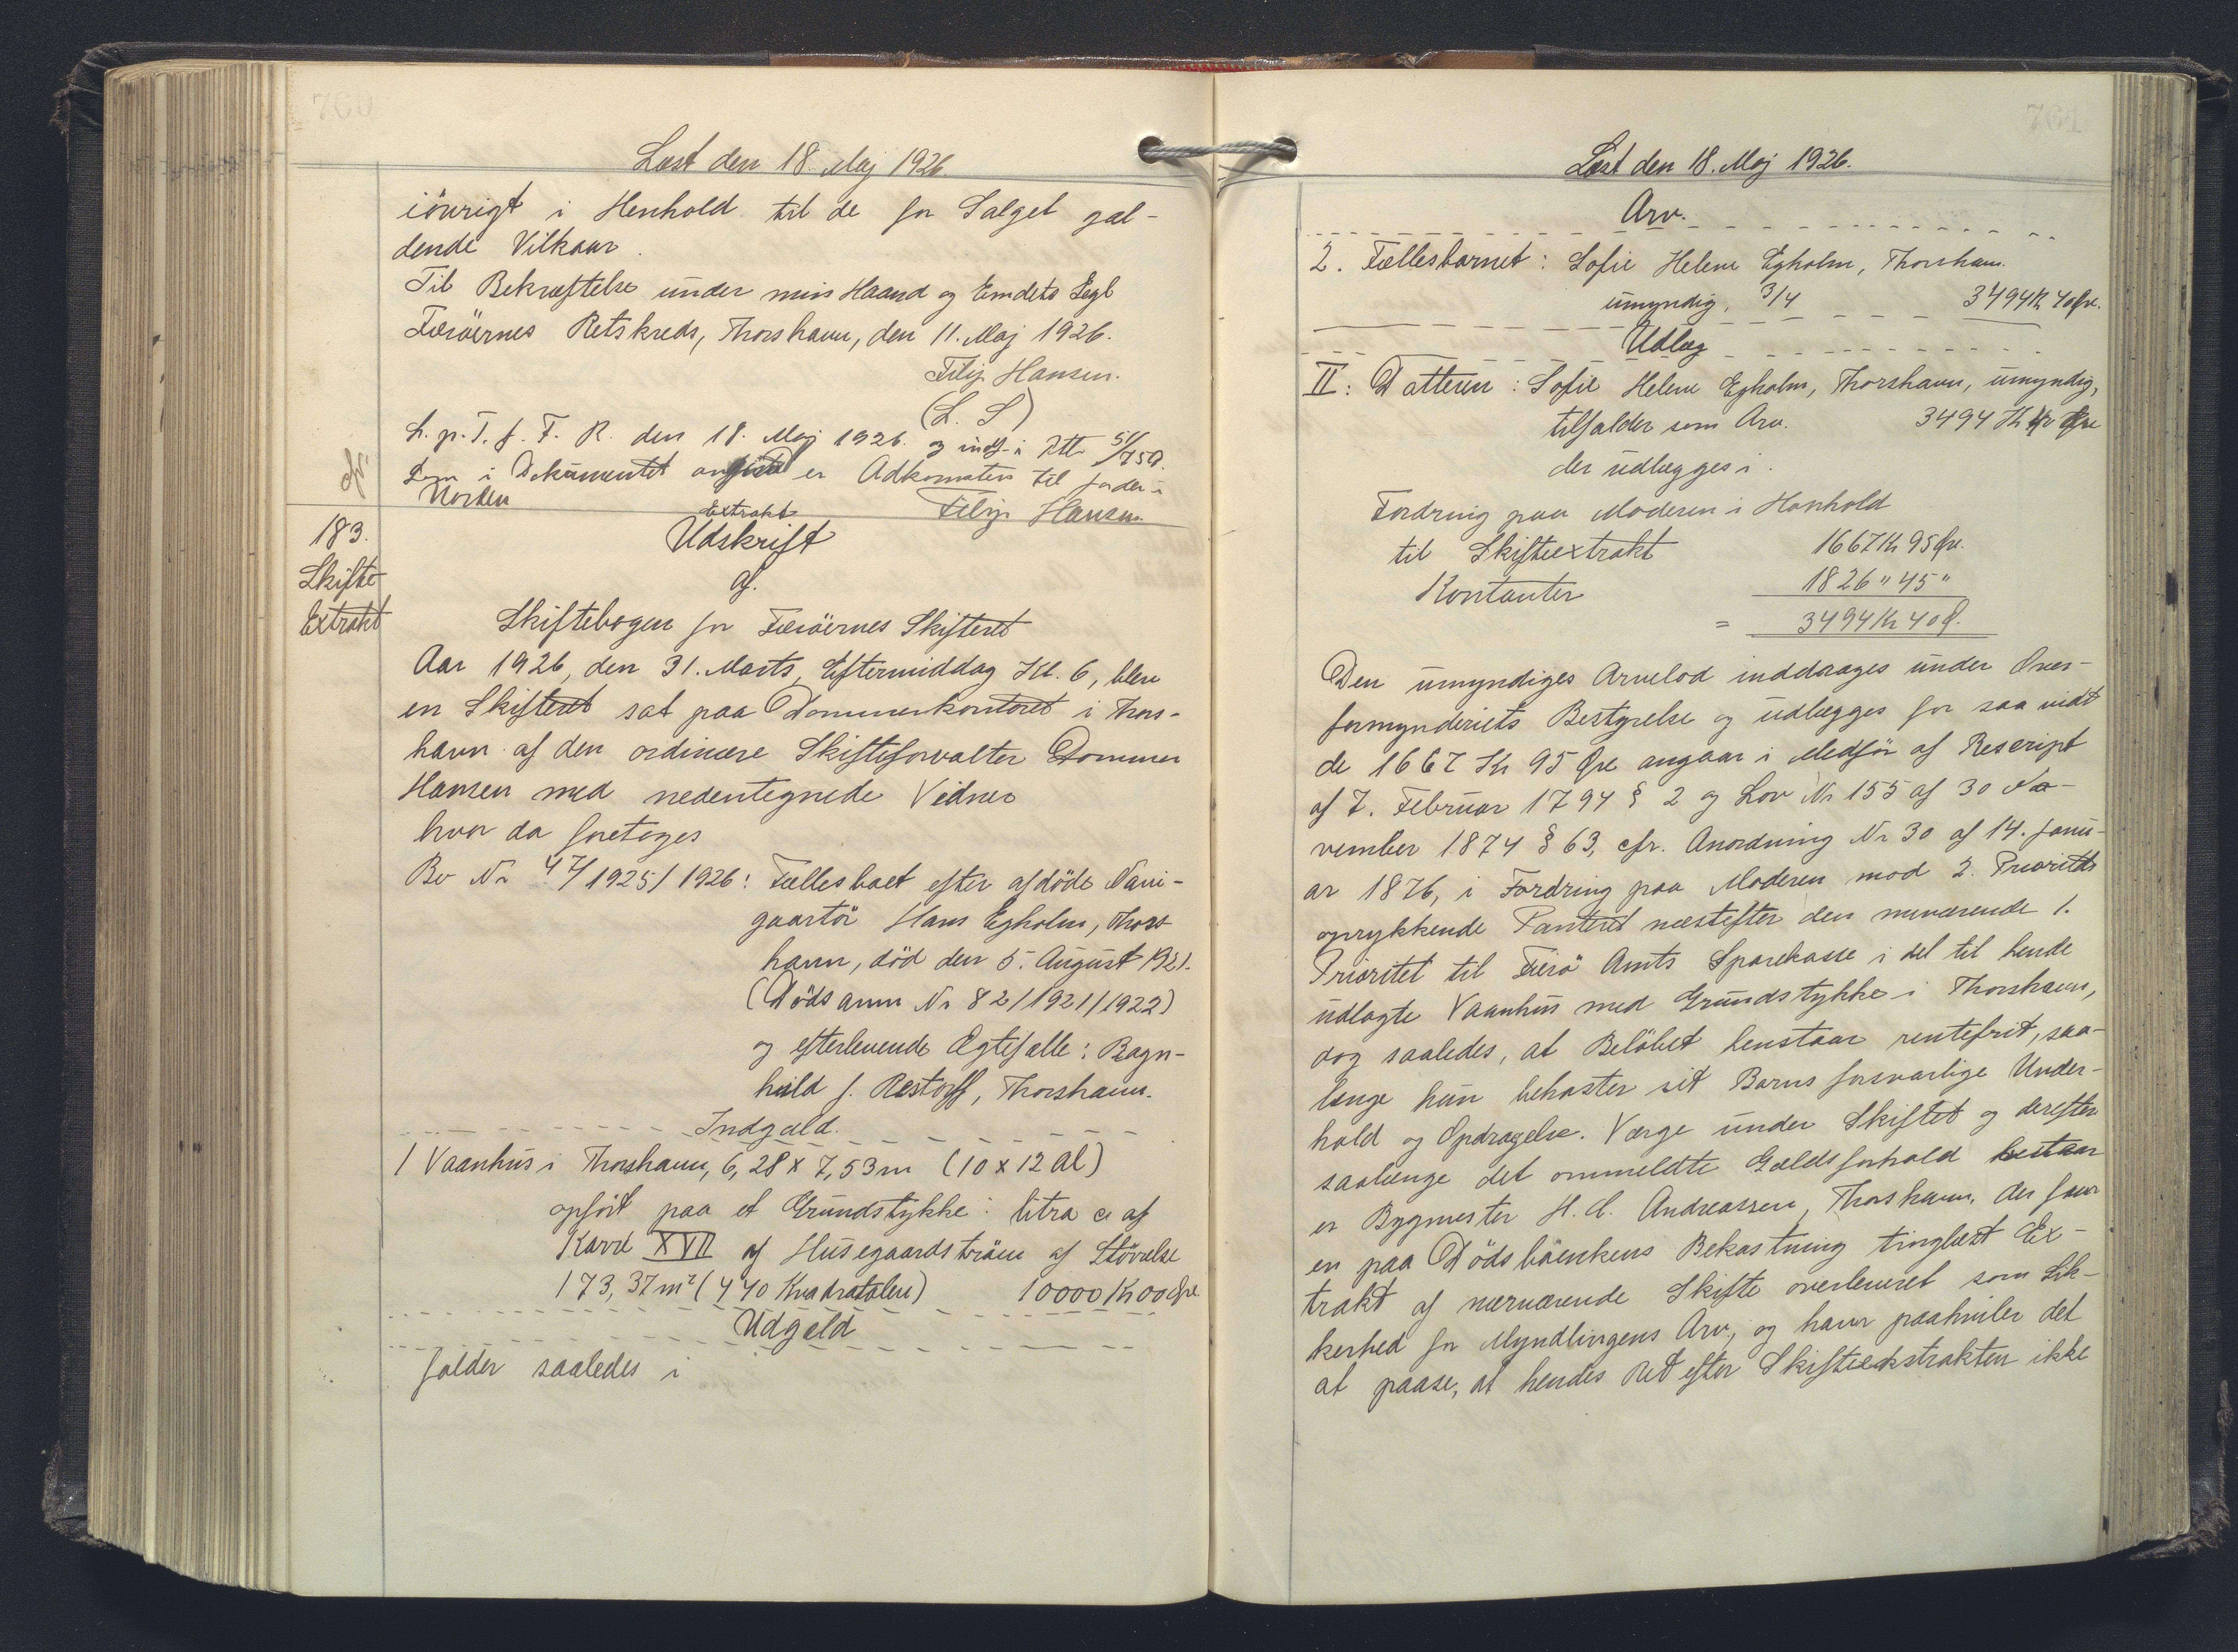 760
Læst den 18. Maj 1926
iövrigt i Henhold til de for Salget gæl-
dende Vilkaar.
Til Bekræftelse under min Haand og Emdets Segl
Færöernes Retskreds, Thorshavn, den 11. Maj 1926.
Filip Hansen.
(L. S)
L. p. T. f. F. R. den 18. Maj 1926. og indf. i Ttt
Som i Dokumentet anført er Adkomsten til Jorden i
Norden
Filip Hansen.
183.
Skifte
Extrakt
Extrakt
Udskrift
af.
Skiftebogen for Færöernes Skifteret
Aar 1926, den 31. Marts, Eftermiddag Kl. 6, blev
en Skifteret sat paa Dommerkontoret i Thors-
havn af den ordinære Skifteforvalter Dommer
Hansen med nedentegnede Vidner
hvor da foretoges
Bo Nr 47/1925/1926: Fællesboet efter afdöde Navi-
gaartör Hans Egholm, Thors
havn, död den 5. August 1921.
(Dödsanm Nr 82/1921/1922)
og efterlevende Ægtefælle: Ragn-
hild f. Restorff, Thorshavn.
Indgæld.
1 Vaanhus i Thorshavn, 6,28 x 7,53 m (10 x 12 al)
opfört paa et Grundstykke: litra c af
Kavd XVII af Husegaardströin af Störrelse
173,37 m² (440 Kvadratalen) 10000 Kr 00 Øre
Udgæld
falder saaledes i
761
Læst den 18. Maj 1926.
Arv.
2. Fællesbarnet: Sofie Helene Egholm, Thorshavn.
umyndig, 3/4 3494 Kr 40 Øre.
Udlæg
II: Datteren: Sofie Helene Egholm, Thorshavn, umyndig,
tilfalder som Arv. 3494 Kr 40 Øre
der udlægges i.
Fordring paa Moderen i Henhold
til Skifteextrakt 1667 Kr 95 Øre.
Kontanter 1826 " 45 "
= 3494 Kr 40 Ø.
Den umyndiges Arvelod inddrages under Over-
formynderiets Bestyrelse og udlægges for saa vidt
de 1667 Kr 95 Øre angaar i Medför af Rescript
af 7. Februar 1794 § 2 og Lov Nr 155 af 30 No-
vember 1874 § 63, cfr. Anordning Nr 30 af 14. Janu-
ar 1876, i Fordring paa Moderen mod 2. Prioritets
oprykkende Panteret næstefter den nuværende 1.
Prioritet til Færö Amts Sparekasse i det til hende
udlagte Vaanhus med Grundstykke i Thorshavn,
dog saaledes, at Belöbet henstaar rentefrit, saa-
længe hun bekoster sit Barns forsvarlige Under-
hold og Opdragelse. Værge under Skiftet og derefter
saalænge det ommeldte Gældsforhold bestaar
er Bygmester H. C. Andreassen, Thorshavn, der faar
en paa Dödsboenkens Bekostning tinglæst Ex-
trakt af nærværende Skifte overleveret som Sik-
kerhed for Myndlingens Arv, og ham paahviler det
at paase, at hendes Ret efter Skifteekstrakten ikke